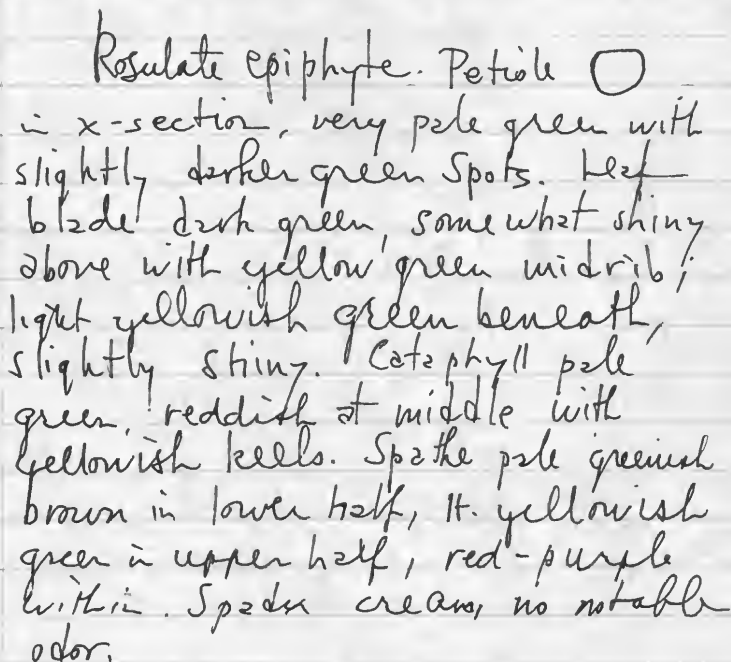 Rosulate epiphyte. Petiole
in x-section, very pale green with
slightly darker green spots. Leaf
blade dark green, somewhat shiny
above with yellow green midrib;
light yellowish green beneath,
slightly shiny. Cataphyll pale
green, reddish at middle with
yellowish keels. Spathe pale greenish
brown in lower half, lt. yellowish
green in upper half, red-purple
within. Spadix cream, no notable
odor.